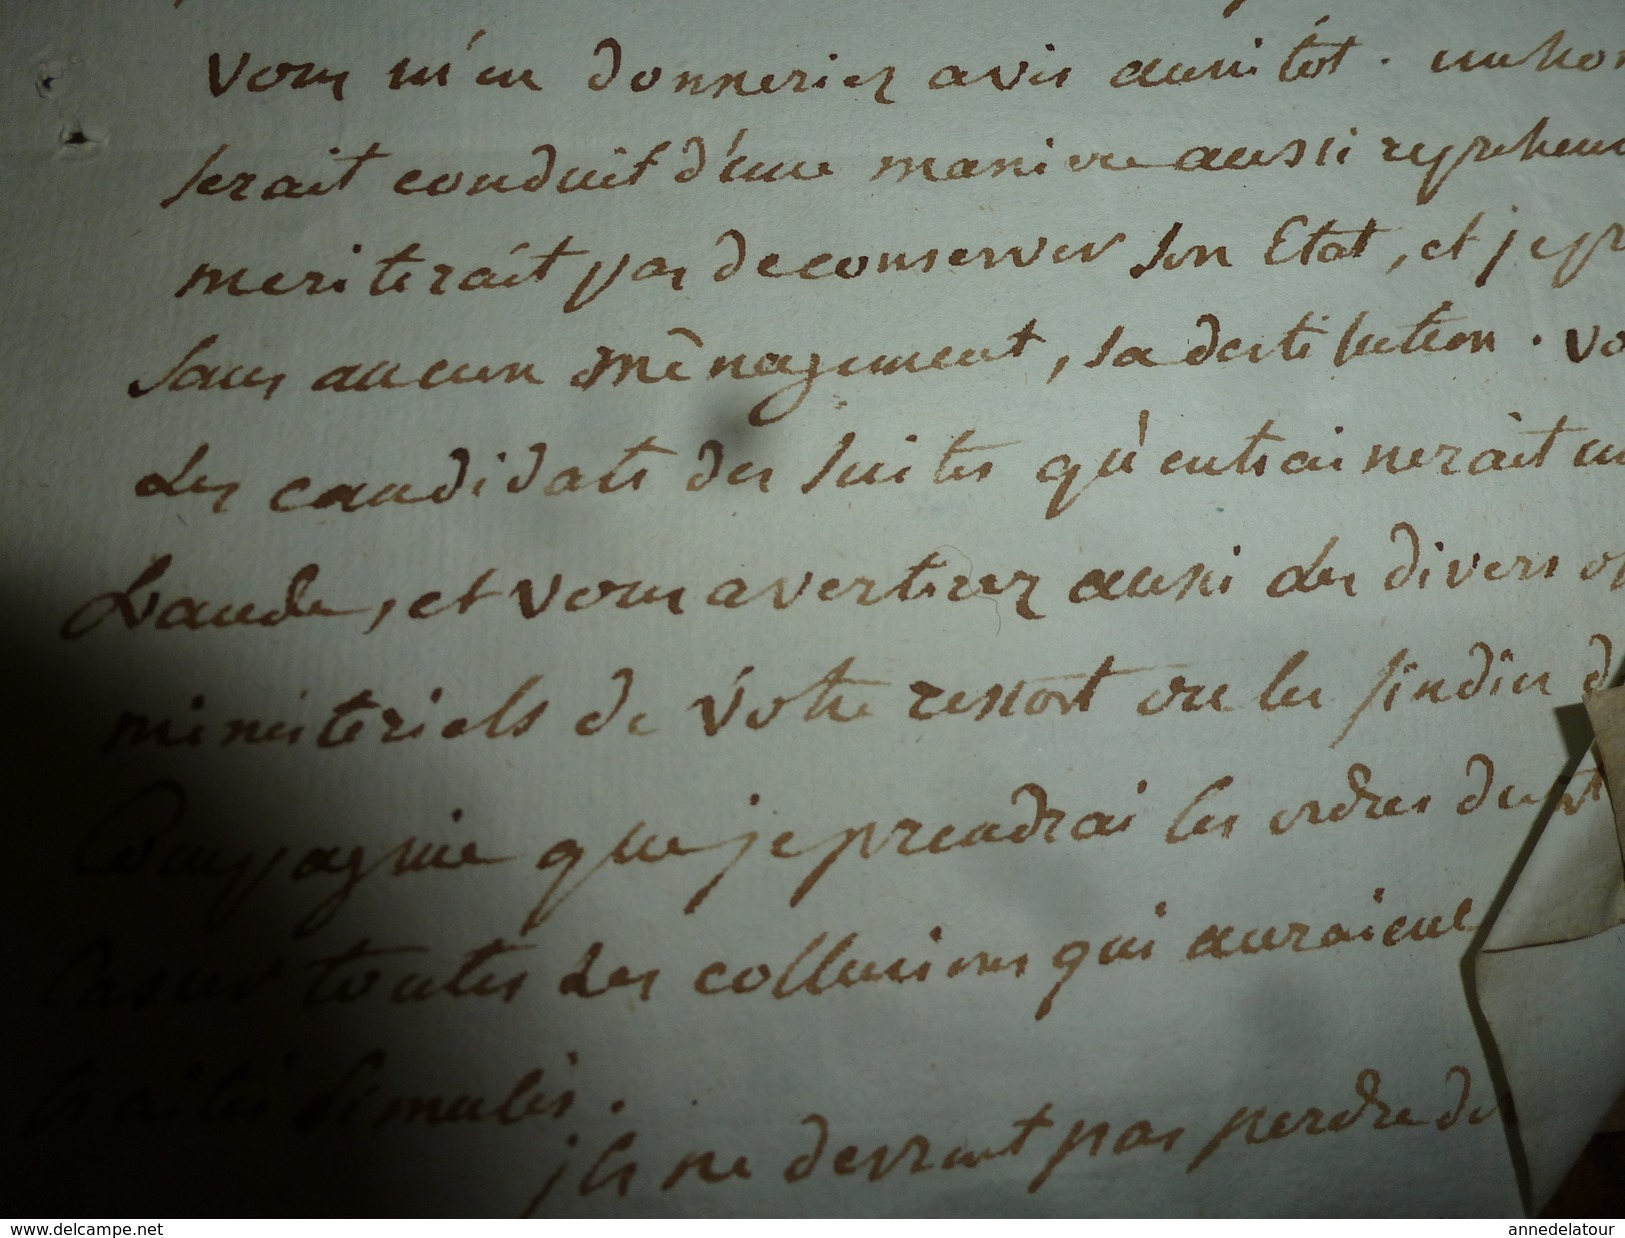 vous m'en donneriez avis aussitôt. un hom
serait conduit d'une maniere aussi reprehens
meriterait pas de conserver son Etat, et je pr
sans aucun ménagement, sa destitution. Vo
les candidats des suites qu'entrainerait un
fraude, et vous avertirez aussi les divers of
ministeriels de votre ressort ou les sindics d
Compagnie que je prendrai les ordres du
sur toutes les collusions qui auraient
traités simulés.
ils ne devront pas perdre de
www.delcampe.net
annedelatour